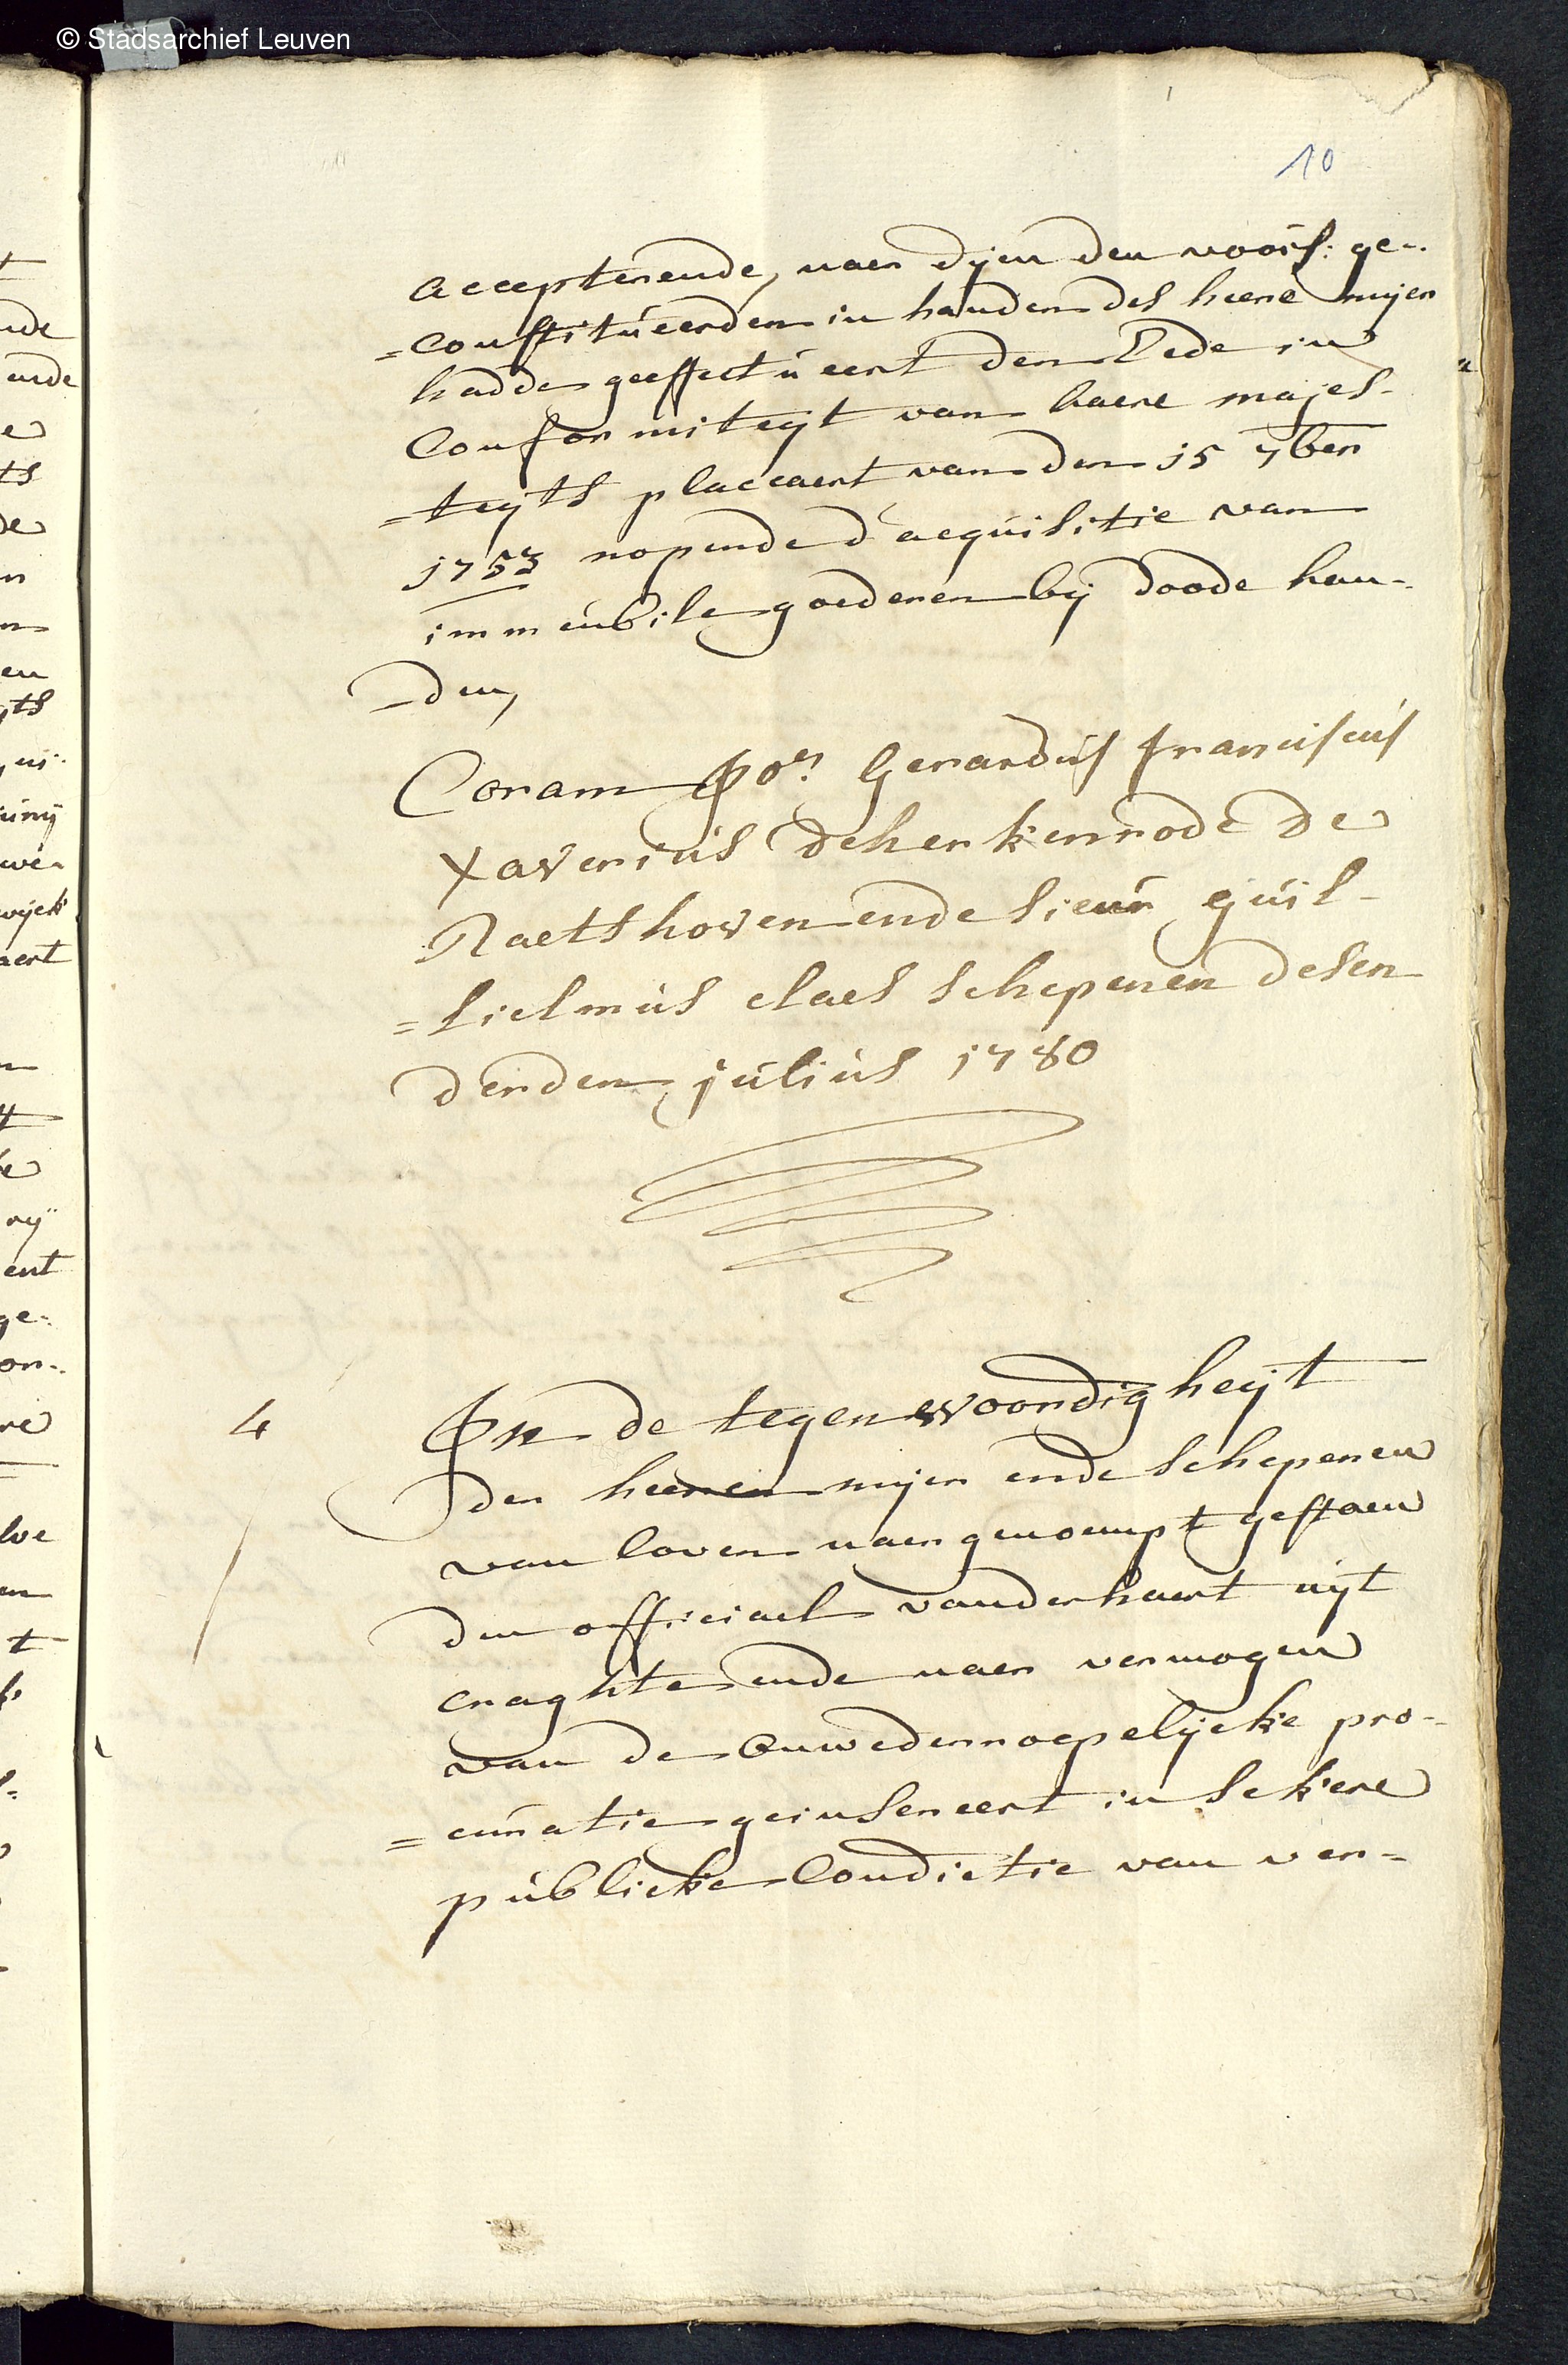 © Stadsarchief Leuven
10
accepterende, naer dijen den voors: ge-
=constitueerden in handen des heere mijer
hadde geeffectueert den Eede in
Conformiteyt van haere majes-
=teyts placcaert van den 15 7ber
1753 nopende d'acquisitie van
immeubile goederen bij doode han-
-den,
Coram Jor. Gerardus franciscus
Xaverius deherkenrode de
Raetshoven ende sieur guil-
=lielmus claes schepenen desen
derden julius 1780
4
In de tegenwoordigheyt
der heeren mijer ende schepenen
van loven naergenoempt gestaen
den officiael vanderhaert uijt
craghte ende naer vermogen
van de onwederroepelijcke pro-
=curatie geinsereert in sekere
publieke Condictie van ver=